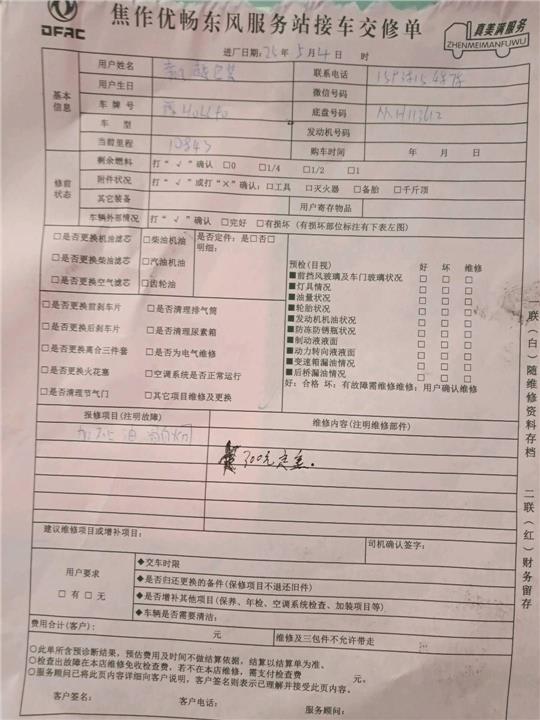 DFAC 焦作优畅东风服务站接车交修单
真美满服务
ZHENMEIMANFUWU
进厂日期:25年5月4日 时
基本信息
用户姓名 联系电话
用户生日 微信号码
车牌号 底盘号码
车型 发动机号码
当前里程 10843 购车时间 年 月 日
修前状态
剩余燃料 打“√”确认 □0 □1/4 □1/2 □1
附件状况 打“√”或打“×”确认:□工具 □灭火器 □备胎 □千斤顶
其它装备 用户寄存物品
车辆外部情况 打“√”确认 □完好 □有损坏(有损坏部位标注有下表左图)
□是否更换机油滤芯 □柴油机油 是否定件:是□否□
明细:
□是否更换柴油滤芯 □汽油机油
□是否更换空气滤芯 □齿轮油
预检(目视) 好 坏 维修
■前挡风玻璃及车门玻璃状况 □ □ □
■灯具情况 □ □ □
■油量状况 □ □ □
■轮胎状况 □ □ □
■发动机机油状况 □ □ □
■防冻防锈瓶状况 □ □ □
■制动液液面 □ □ □
■动力转向液液面 □ □ □
■变速箱漏油情况 □ □ □
■后桥漏油情况 □ □ □
好:合格 坏:有故障需维修维修:用户确认维修
□是否更换前刹车片 □是否清理排气筒
□是否更换后刹车片 □是否清理尿素箱
□是否更换离合三件套 □是否为电气维修
□是否更换火花塞 □空调系统是否正常运行
□是否清理节气门 □其它项目维修及更换
报修项目(注明故障) 维修内容(注明维修部件)
300元
建议维修项目或增补项目: 司机确认签字:
用户要求
□有 □无
◆交车时限
◆是否归还更换的备件(保修项目不退还旧件)
◆是否增补其他项目(保养、年检、空调系统检查、加装项目等)
◆车辆是否需要清洁:
费用合计(客户): 元 维修及三包件不允许带走
○此单所含预诊断结果,预估费用及时间不做结算依据,结算以结算单为准。
○检查出故障在本店维修免收检查费,若不在本店维修,需支付检查费 元。
○服务顾问已将此页内容详细向客户说明,客户签名则表示已理解并接受此页内容。
客户签名: 客户电话: 服务顾问:
一联(白)随维修资料存档
二联(红)财务留存